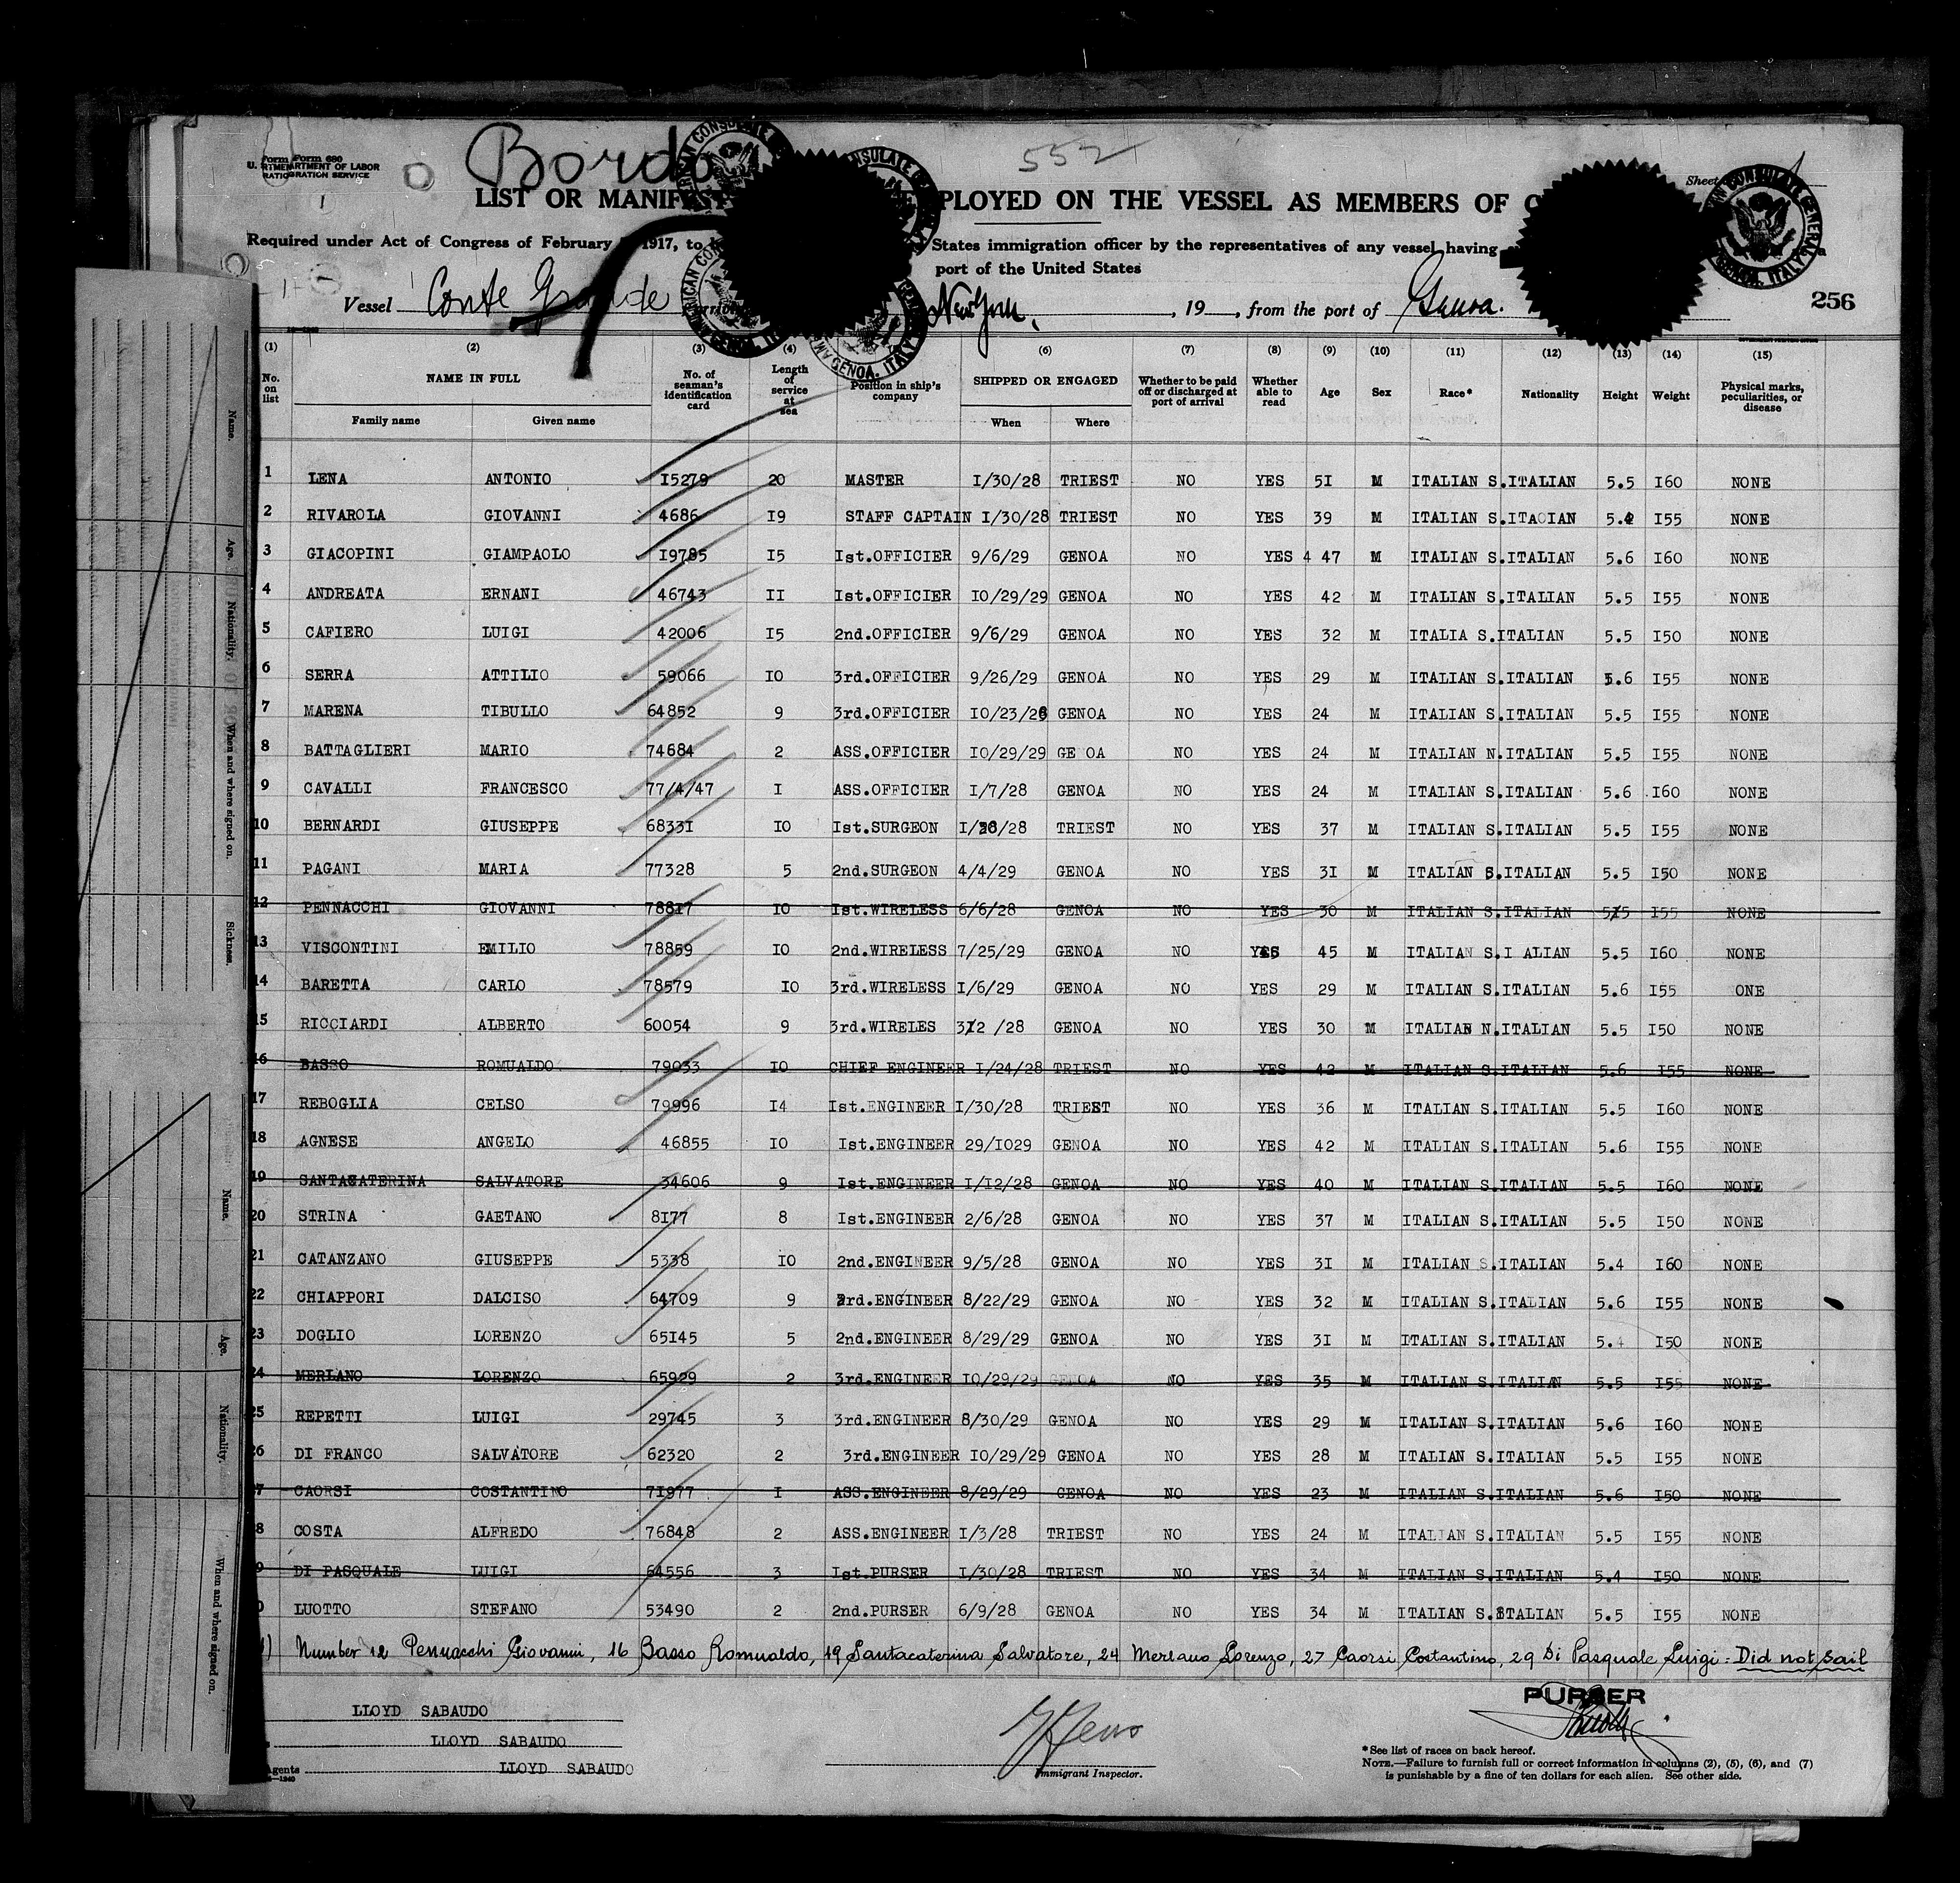 Form Form 680
U. RTMENARTMENT OF LABOR
RATIOGRATION SERVICE
Bordo
552
Sheet
LIST OR MANIFEST PLOYED ON THE VESSEL AS MEMBERS OF
Required under Act of Congress of February 1917, to States immigration officer by the representatives of any vessel having
port of the United States
Vessel Conte Grande New York, , 19 , from the port of Genoa.
256
(1) (2) (3) (4) (6) (7) (8) (9) (10) (11) (12) (13) (14) (15)
No. on list NAME IN FULL Family name Given name No. of seaman's identification card Length of service at sea Position in ship's company SHIPPED OR ENGAGED When Where Whether to be paid off or discharged at port of arrival Whether able to read Age Sex Race* Nationality Height Weight Physical marks, peculiarities, or disease
1 LENA ANTONIO I5279 20 MASTER I/30/28 TRIEST NO YES 5I M ITALIAN S.ITALIAN 5.5 I60 NONE
2 RIVAROLA GIOVANNI 4686 I9 STAFF CAPTAIN I/30/28 TRIEST NO YES 39 M ITALIAN S.ITAOIAN 5.4 I55 NONE
3 GIACOPINI GIAMPAOLO I9785 I5 Ist.OFFICIER 9/6/29 GENOA NO YES 4 47 M ITALIAN S.ITALIAN 5.6 I60 NONE
4 ANDREATA ERNANI 46743 II Ist.OFFICIER IO/29/29 GENOA NO YES 42 M ITALIAN S.ITALIAN 5.5 I55 NONE
5 CAFIERO LUIGI 42006 I5 2nd.OFFICIER 9/6/29 GENOA NO YES 32 M ITALIA S.ITALIAN 5.5 I50 NONE
6 SERRA ATTILIO 59066 IO 3rd.OFFICIER 9/26/29 GENOA NO YES 29 M ITALIAN S.ITALIAN 5.6 I55 NONE
7 MARENA TIBULLO 64852 9 3rd.OFFICIER IO/23/28 GENOA NO YES 24 M ITALIAN S.ITALIAN 5.5 I55 NONE
8 BATTAGLIERI MARIO 74684 2 ASS.OFFICIER IO/29/29 GE OA NO YES 24 M ITALIAN N.ITALIAN 5.5 I55 NONE
9 CAVALLI FRANCESCO 77/4/47 I ASS.OFFICIER I/7/28 GENOA NO YES 24 M ITALIAN S.ITALIAN 5.6 I60 NONE
10 BERNARDI GIUSEPPE 6833I IO Ist.SURGEON I/30/28 TRIEST NO YES 37 M ITALIAN S.ITALIAN 5.5 I55 NONE
11 PAGANI MARIA 77328 5 2nd.SURGEON 4/4/29 GENOA NO YES 3I M ITALIAN S.ITALIAN 5.5 I50 NONE
12 PENNACCHI GIOVANNI 788I7 IO Ist.WIRELESS 6/6/28 GENOA NO YES 30 M ITALIAN S.ITALIAN 5I5 I55 NONE
13 VISCONTINI EMILIO 78859 IO 2nd.WIRELESS 7/25/29 GENOA NO YES 45 M ITALIAN S.I ALIAN 5.5 I60 NONE
14 BARETTA CARLO 78579 IO 3rd.WIRELESS I/6/29 GENOA NO YES 29 M ITALIAN S.ITALIAN 5.6 I55 ONE
15 RICCIARDI ALBERTO 60054 9 3rd.WIRELES 3I2 /28 GENOA NO YES 30 M ITALIAN N.ITALIAN 5.5 I50 NONE
16 BASSO ROMUALDO 79033 IO CHIEF ENGINEER I/24/28 TRIEST NO YES 42 M ITALIAN S.ITALIAN 5.6 I55 NONE
17 REBOGLIA CELSO 79996 I4 Ist.ENGINEER I/30/28 TRIEST NO YES 36 M ITALIAN S.ITALIAN 5.5 I60 NONE
18 AGNESE ANGELO 46855 IO Ist.ENGINEER 29/IO29 GENOA NO YES 42 M ITALIAN S.ITALIAN 5.6 I55 NONE
19 SANTACATERINA SALVATORE 34606 9 Ist.ENGINEER I/I2/28 GENOA NO YES 40 M ITALIAN S.ITALIAN 5.5 I60 NONE
20 STRINA GAETANO 8I77 8 Ist.ENGINEER 2/6/28 GENOA NO YES 37 M ITALIAN S.ITALIAN 5.5 I50 NONE
21 CATANZANO GIUSEPPE 5338 IO 2nd.ENGINEER 9/5/28 GENOA NO YES 3I M ITALIAN S.ITALIAN 5.4 I60 NONE
22 CHIAPPORI DALCISO 64709 9 2rd.ENGINEER 8/22/29 GENOA NO YES 32 M ITALIAN S.ITALIAN 5.6 I55 NONE
23 DOGLIO LORENZO 65I45 5 2nd.ENGINEER 8/29/29 GENOA NO YES 3I M ITALIAN S.ITALIAN 5.4 I50 NONE
24 MERLANO LORENZO 65929 2 3rd.ENGINEER IO/29/29 GENOA NO YES 35 M ITALIAN S.ITALIAN 5.5 I55 NONE
25 REPETTI LUIGI 29745 3 3rd.ENGINEER 8/30/29 GENOA NO YES 29 M ITALIAN S.ITALIAN 5.6 I60 NONE
26 DI FRANCO SALVATORE 62320 2 3rd.ENGINEER IO/29/29 GENOA NO YES 28 M ITALIAN S.ITALIAN 5.5 I55 NONE
7 CAORSI COSTANTINO 7I977 I ASS.ENGINEER 8/29/29 GENOA NO YES 23 M ITALIAN S.ITALIAN 5.6 I50 NONE
8 COSTA ALFREDO 76848 2 ASS.ENGINEER I/3/28 TRIEST NO YES 24 M ITALIAN S.ITALIAN 5.5 I55 NONE
9 DI PASQUALE LUIGI 64556 3 Ist.PURSER I/30/28 TRIEST NO YES 34 M ITALIAN S.ITALIAN 5.4 I50 NONE
0 LUOTTO STEFANO 53490 2 2nd.PURSER 6/9/28 GENOA NO YES 34 M ITALIAN S.ITALIAN 5.5 I55 NONE
Number 12 Pennacchi Giovanni, 16 Basso Romualdo, 19 Santacaterina Salvatore, 24 Merlano Lorenzo, 27 Caorsi Costantino, 29 Di Pasquale Luigi: Did not sail
LLOYD SABAUDO
LLOYD SABAUDO
Agents LLOYD SABAUDO
Immigrant Inspector.
PURSER
*See list of races on back hereof.
NOTE.—Failure to furnish full or correct information in columns (2), (5), (6), and (7)
is punishable by a fine of ten dollars for each alien. See other side.
Name.
Age.
Nationality.
When and where signed on.
Sickness.
Name.
Age.
Nationality.
When and where signed on.